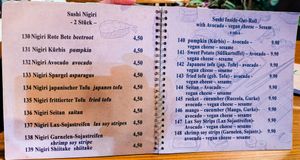 Sushi Nigiri
- 2 Stück -
130 Nigiri Rote Bete beetroot 4,50
131 Nigiri Kürbis pumpkin 4,50
132 Nigiri Avocado avocado 4,50
134 Nigiri Spargel asparagus 4,50
134 Nigiri japanischer Tofu japanes tofu 4,50
135 Nigiri frittierter Tofu fried tofu 4,50
136 Nigiri Seitan seitan 4,50
137 Nigiri Lax-Sojastreifen lax soy stripes 4,50
138 Nigiri Garnelen-Sojastreifen
shrimp soy stripe 4,50
139 Nigiri Shiitake shiitake 4,50
Sushi Inside-Out-Roll
with Avocado - vegan cheese - Sesame
140 pumpkin (Kürbis) - Avocado -
vegan cheese - sesame 9,90
141 Sweet Potato (Süßkartoffel) - Avocado -
vegan cheese - sesame 9,90
142 Japanese tofu (jap. Tofu) - avocado -
vegan cheese - sesame 9,90
143 fried tofu (gefr. Tofu) - avocado -
vegan cheese - sesame 9,90
144 Seitan - Avocado -
vegan cheese - sesame 9,90
vegan cheese - sesame 9,90
vegan cheese - sesame 9,90
147 Lax Soy Strips (Lax Sojastreifen) -
avocado - vegan cheese - sesame 9,90
148 shrimp soy strips (Garnelen